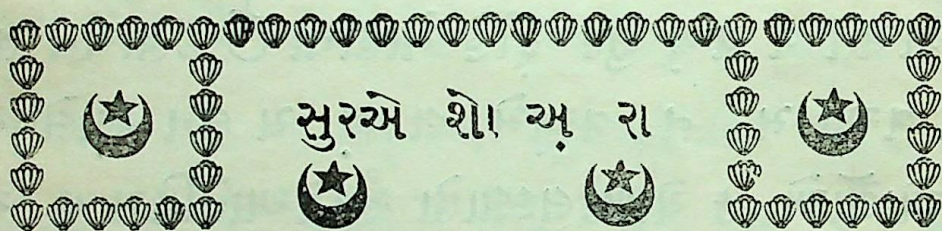 સુરએ શોઅ઼રા